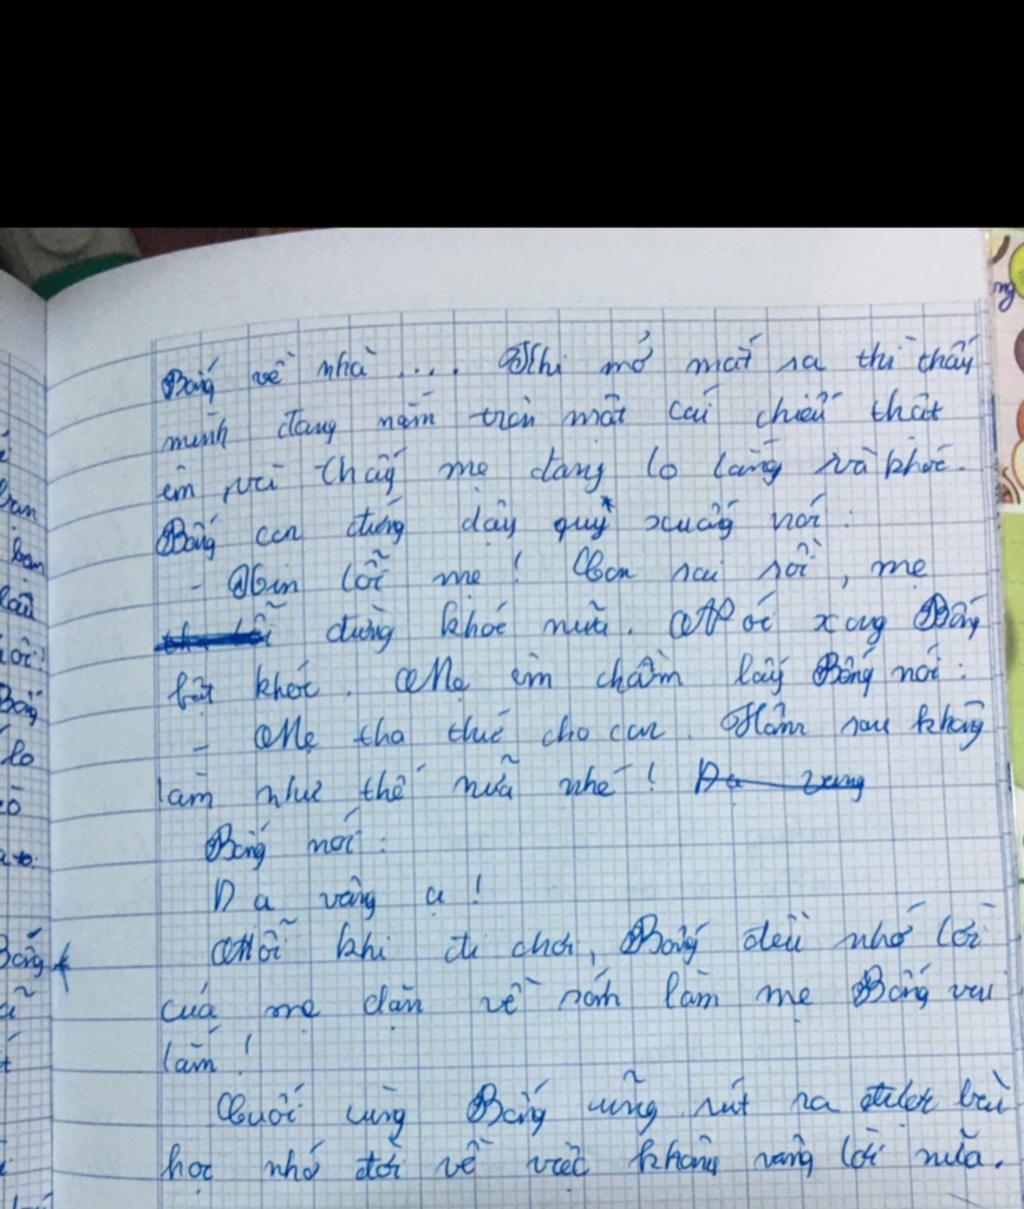 Bống về nhà ... Khi mở mắt ra thì thấy
mình đang nằm trên một cái chiếu thật
êm và thấy mẹ đang lo lắng và khóc.
Bống con đứng dậy quỳ xuống nói:
- Xin lỗi mẹ! Con sai rồi, mẹ
đừng khóc nữa. Nói xong Bống
bật khóc. Mẹ ôm chầm lấy Bống nói:
- Mẹ tha thứ cho con. Hôm sau không
làm như thế nữa nhé! Dạ vâng
Bống nói:
Dạ vâng ạ!
Mỗi khi đi chơi, Bống đều nhớ lời
của mẹ dặn về sớm làm mẹ Bống vui
lắm!
Cuối cùng Bống cũng rút ra được bài
học nhớ đời về việc không vâng lời nữa.